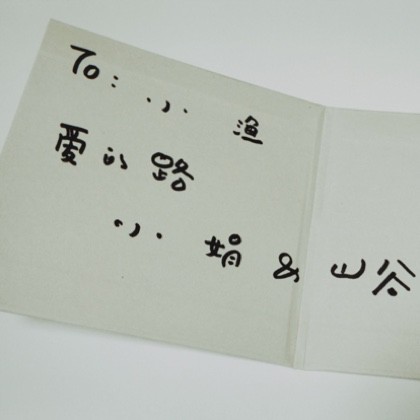 To: 小渔
爱的路
小娟&山谷